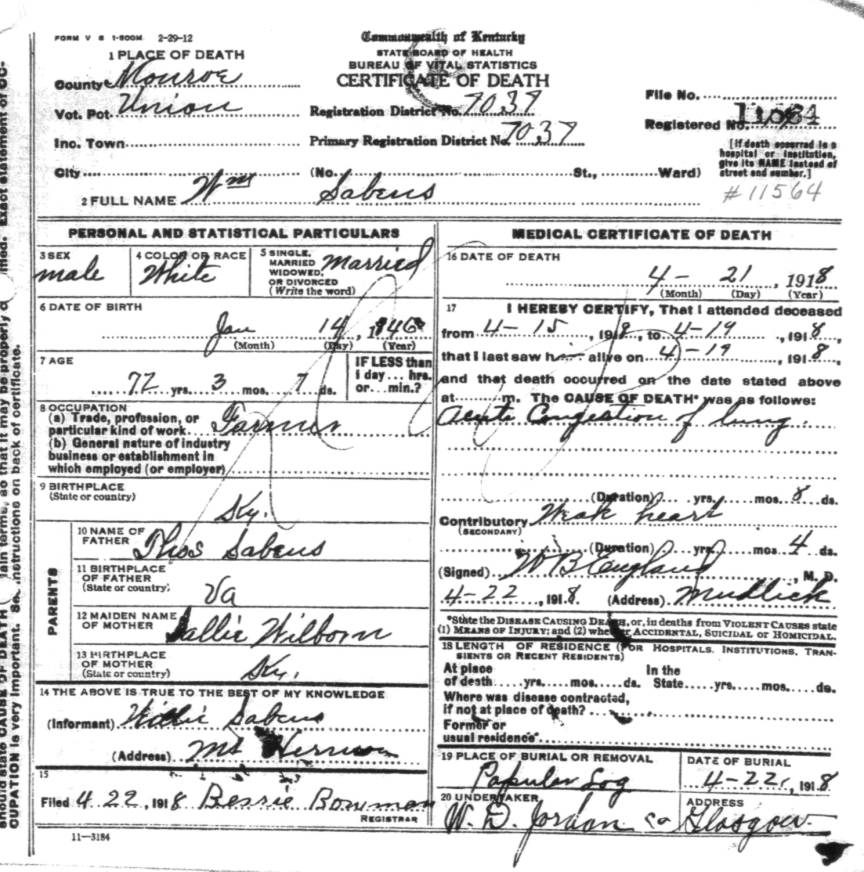 FORM V S 1-500M 2-29-12
Commonwealth of Kentucky
STATE BOARD OF HEALTH
BUREAU OF VITAL STATISTICS
CERTIFICATE OF DEATH
1 PLACE OF DEATH
County Monroe
Vot. Pct. Union
Inc. Town
City
Registration District No. 7037
Primary Registration District No. 7037
(No. St., Ward)
File No.
Registered No.
[If death occurred in a hospital or institution, give its NAME instead of street and number.]
#11564
2 FULL NAME Wm Sabens
PERSONAL AND STATISTICAL PARTICULARS
3 SEX
male
4 COLOR OR RACE
White
5 SINGLE, MARRIED WIDOWED, OR DIVORCED (Write the word)
Married
6 DATE OF BIRTH
Jan 14, 1846
(Month) (Day) (Year)
7 AGE
72 yrs. 3 mos. 7 ds.
IF LESS than 1 day... hrs. or... min.?
8 OCCUPATION
(a) Trade, profession, or particular kind of work Farmer
(b) General nature of industry business or establishment in which employed (or employer)
9 BIRTHPLACE
(State or country)
Ky.
PARENTS
10 NAME OF FATHER
Thos Sabens
11 BIRTHPLACE OF FATHER (State or country)
Va
12 MAIDEN NAME OF MOTHER
Sallie Wilborn
13 BIRTHPLACE OF MOTHER (State or country)
Ky.
14 THE ABOVE IS TRUE TO THE BEST OF MY KNOWLEDGE
(Informant) Willie Sabens
(Address) Mt Hermon
15
Filed 4 22, 1918 Bessie Bowman
REGISTRAR
11-3184
MEDICAL CERTIFICATE OF DEATH
16 DATE OF DEATH
4- 21, 1918
(Month) (Day) (Year)
17 I HEREBY CERTIFY, That I attended deceased
from 4-15, 1918, to 4-19, 1918,
that I last saw him alive on 4-19, 1918,
and that death occurred on the date stated above
at m. The CAUSE OF DEATH* was as follows:
Acute Congestion of lung.
(Duration) yrs. mos. 8 ds.
Contributory Weak heart
(SECONDARY)
(Duration) yrs. mos. 4 ds.
(Signed) W B England, M. D.
4-22, 1918. (Address) Mudlick
*State the DISEASE CAUSING DEATH, or, in deaths from VIOLENT CAUSES state
(1) MEANS OF INJURY; and (2) whether ACCIDENTAL, SUICIDAL or HOMICIDAL.
18 LENGTH OF RESIDENCE (FOR HOSPITALS, INSTITUTIONS, TRANSIENTS OR RECENT RESIDENTS)
At place of death yrs. mos. ds. In the State yrs. mos. ds.
Where was disease contracted, if not at place of death?
Former or usual residence
19 PLACE OF BURIAL OR REMOVAL
Popular Log
DATE OF BURIAL
4-22, 1918
20 UNDERTAKER
W. D. Jordan co
ADDRESS
Glasgow
should state CAUSE OF DEATH
lain terms, so that it may be properly
Exact statement of OC-
CUPATION is very important.
instructions on back of certificate.